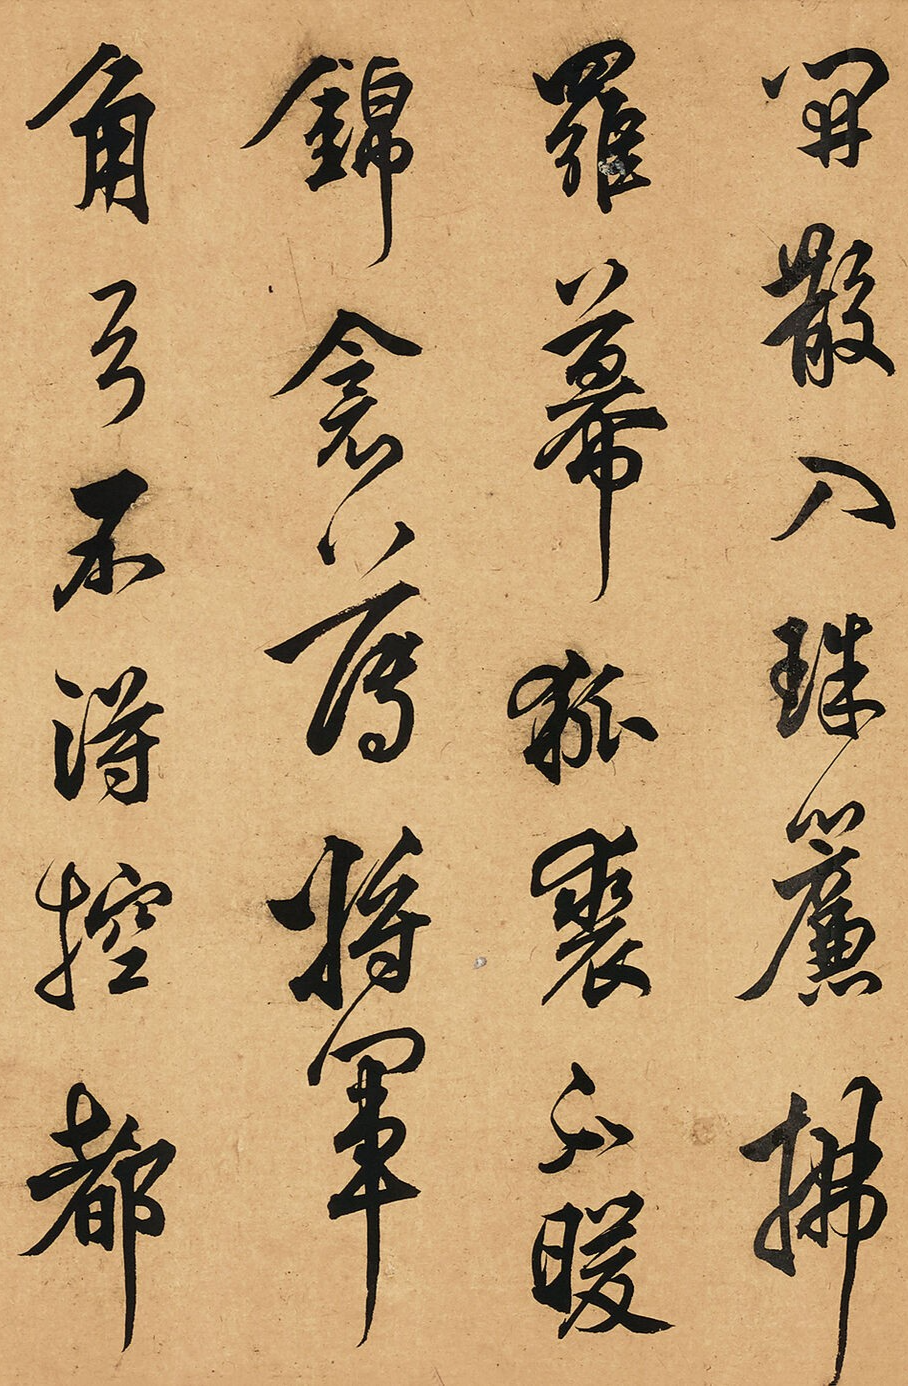 開散入珠簾拂
羅幕狐裘不暖
錦衾薄將軍
角弓不得控都